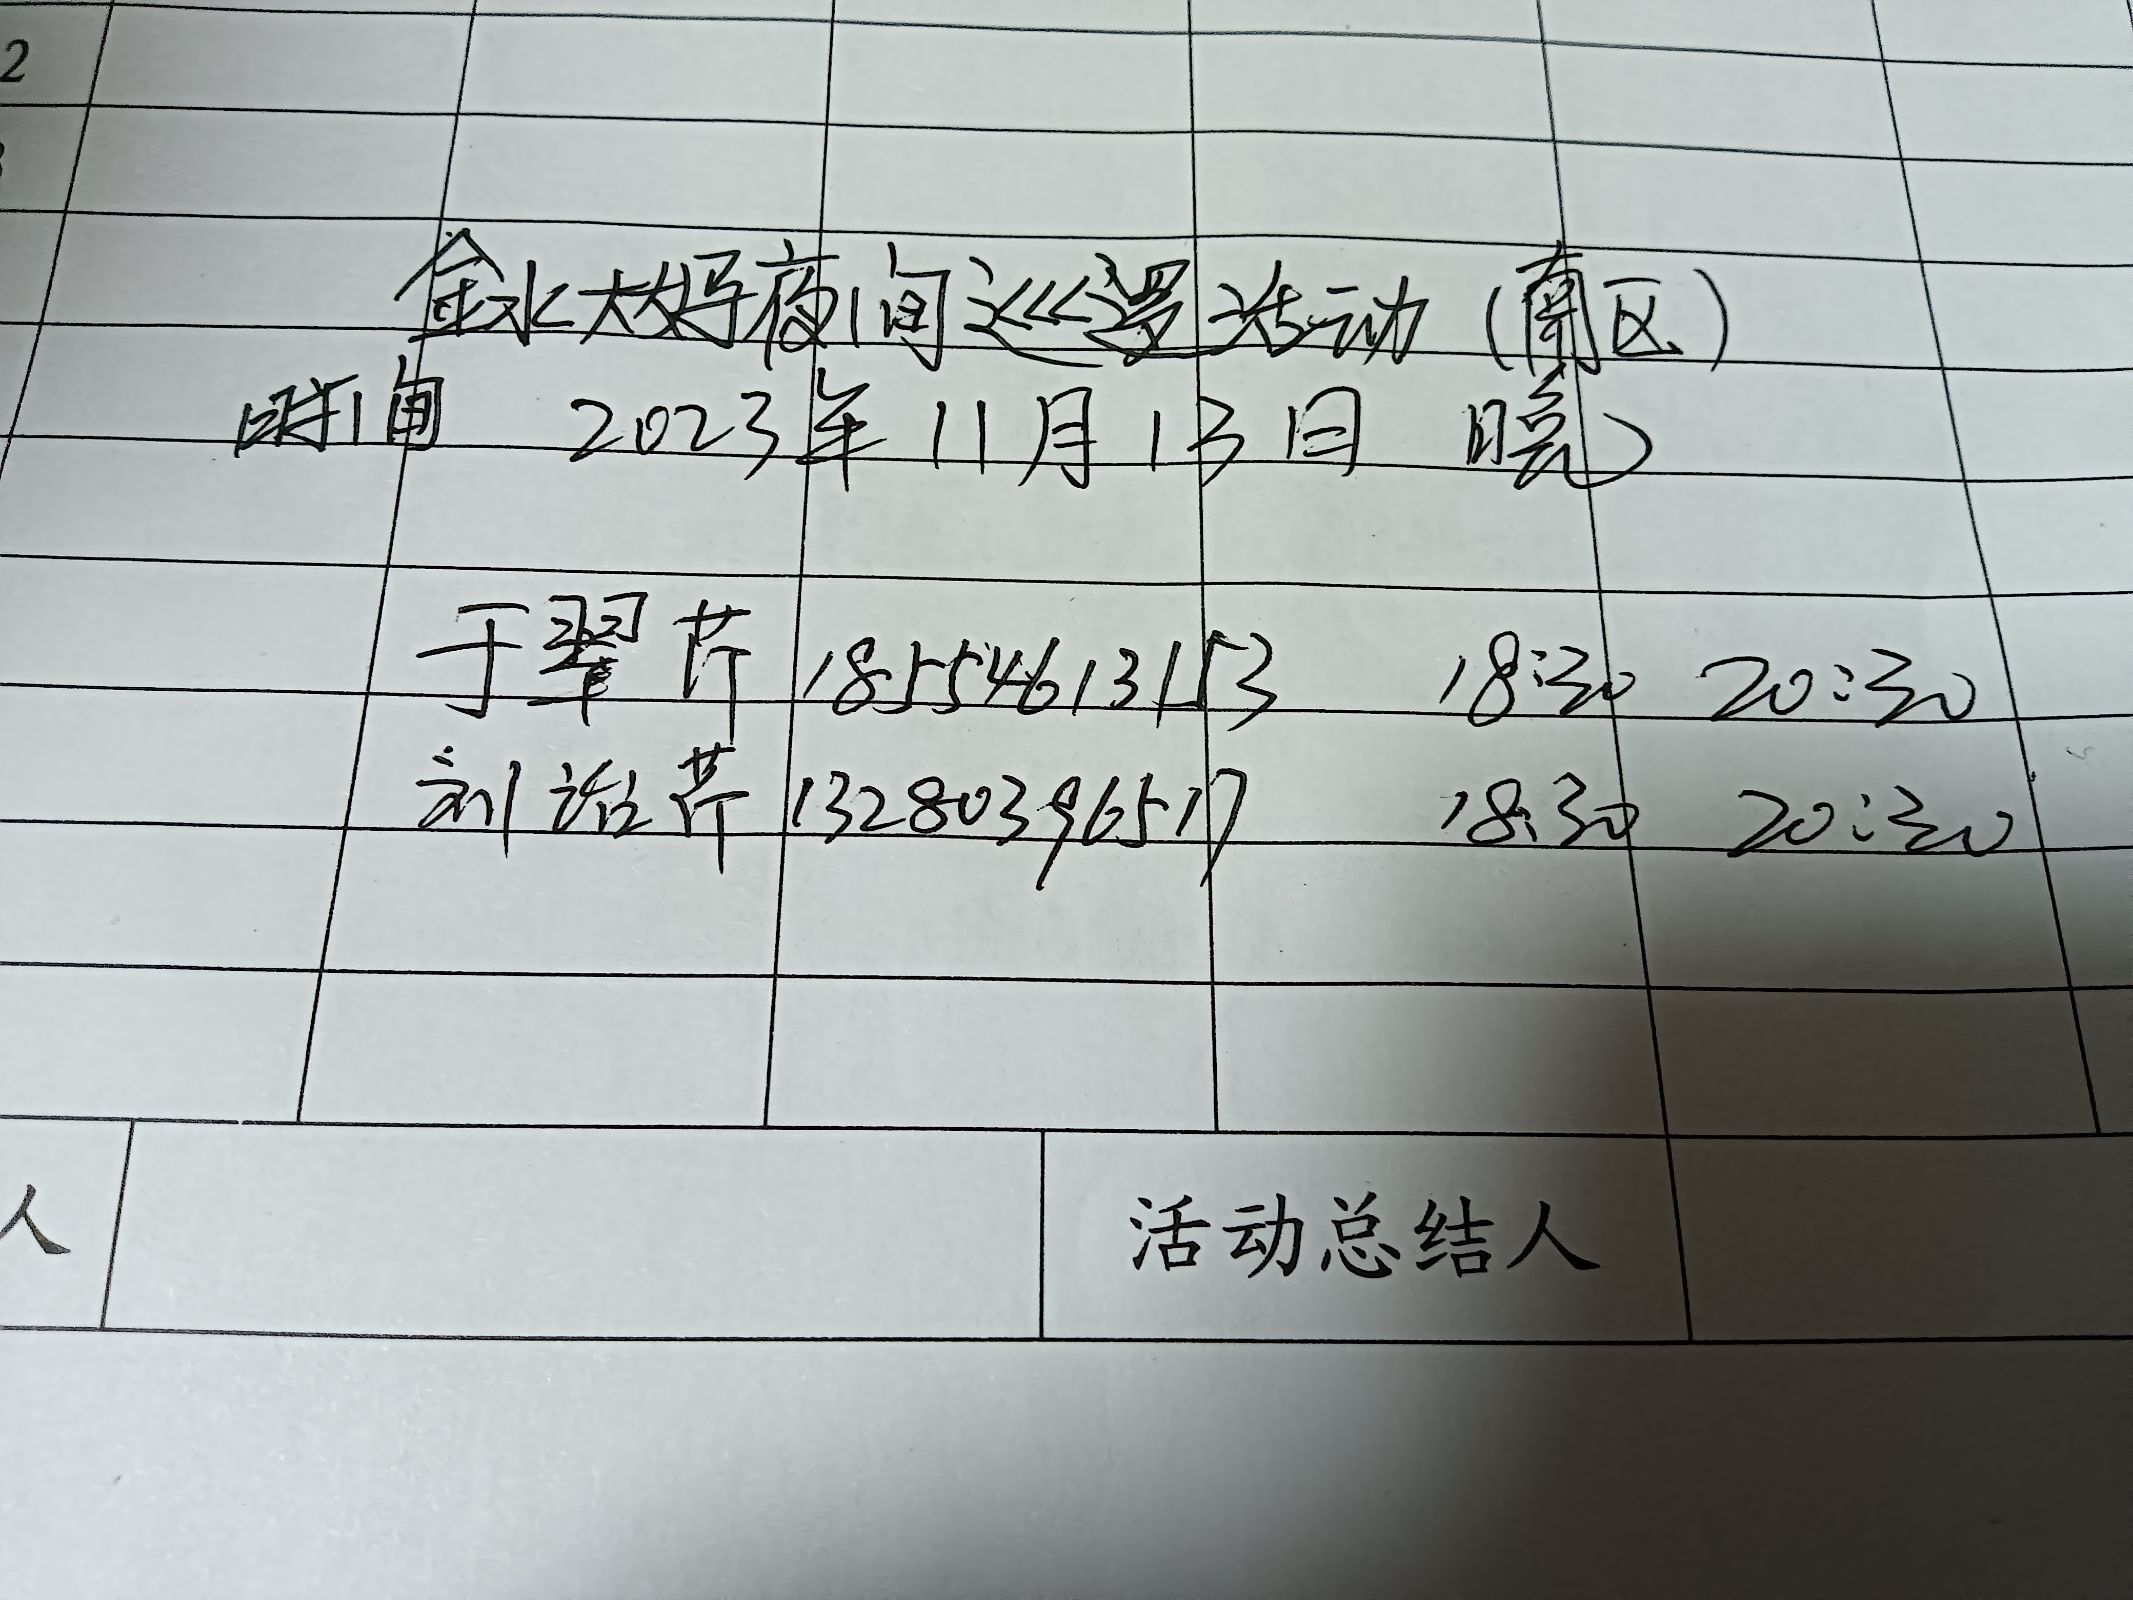 2
金水大好夜间巡逻活动(南区)
时间 2023年11月13日 晚
于翠芹 18554613153 18:30 20:30
刘治芹 13280396517 18:30 20:30
人
活动总结人